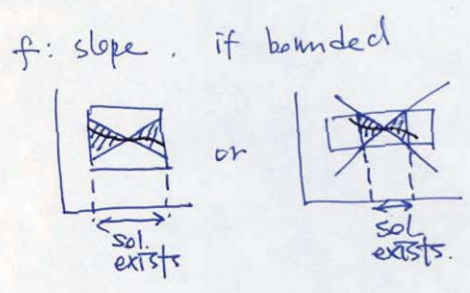 f: slope. if bounded
or
sol.
exists
sol.
exists.